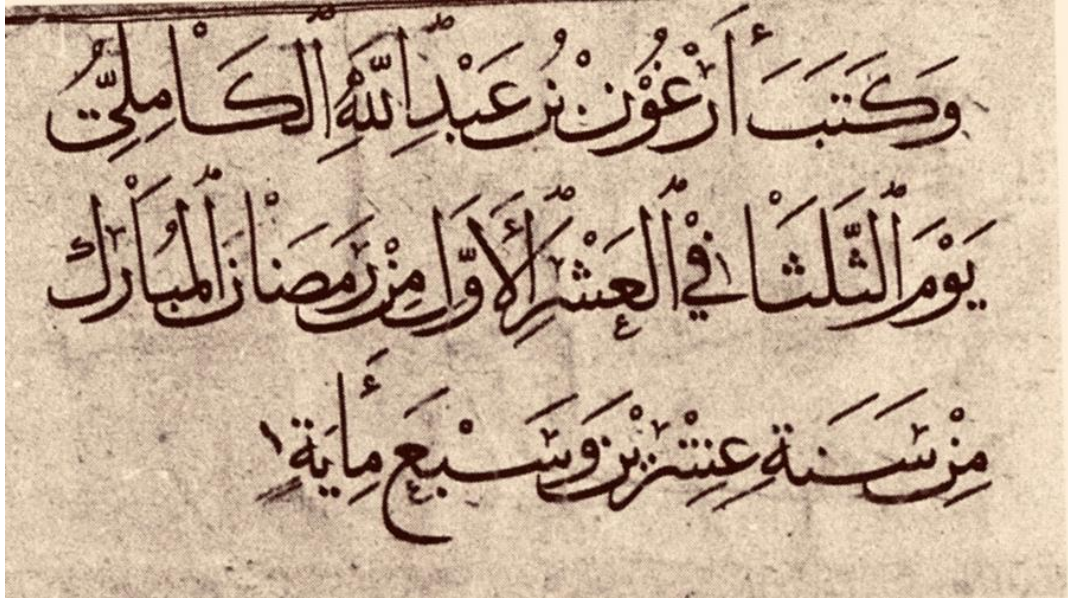 وَكَتَبَ أَرْغُوْن بْنُ عَبْدِ اللَّهِ الْكَامِلِيُّ
يَوْمَ الثَّلَثَا فِي الْعَشْرِ الْأَوَّلِ مِنْ رَمَضَانَ الْمُبَارَك
مِنْ سَنَةِ عِشْرِيْنَ وَسَبْعَ مِأَيَةٍ